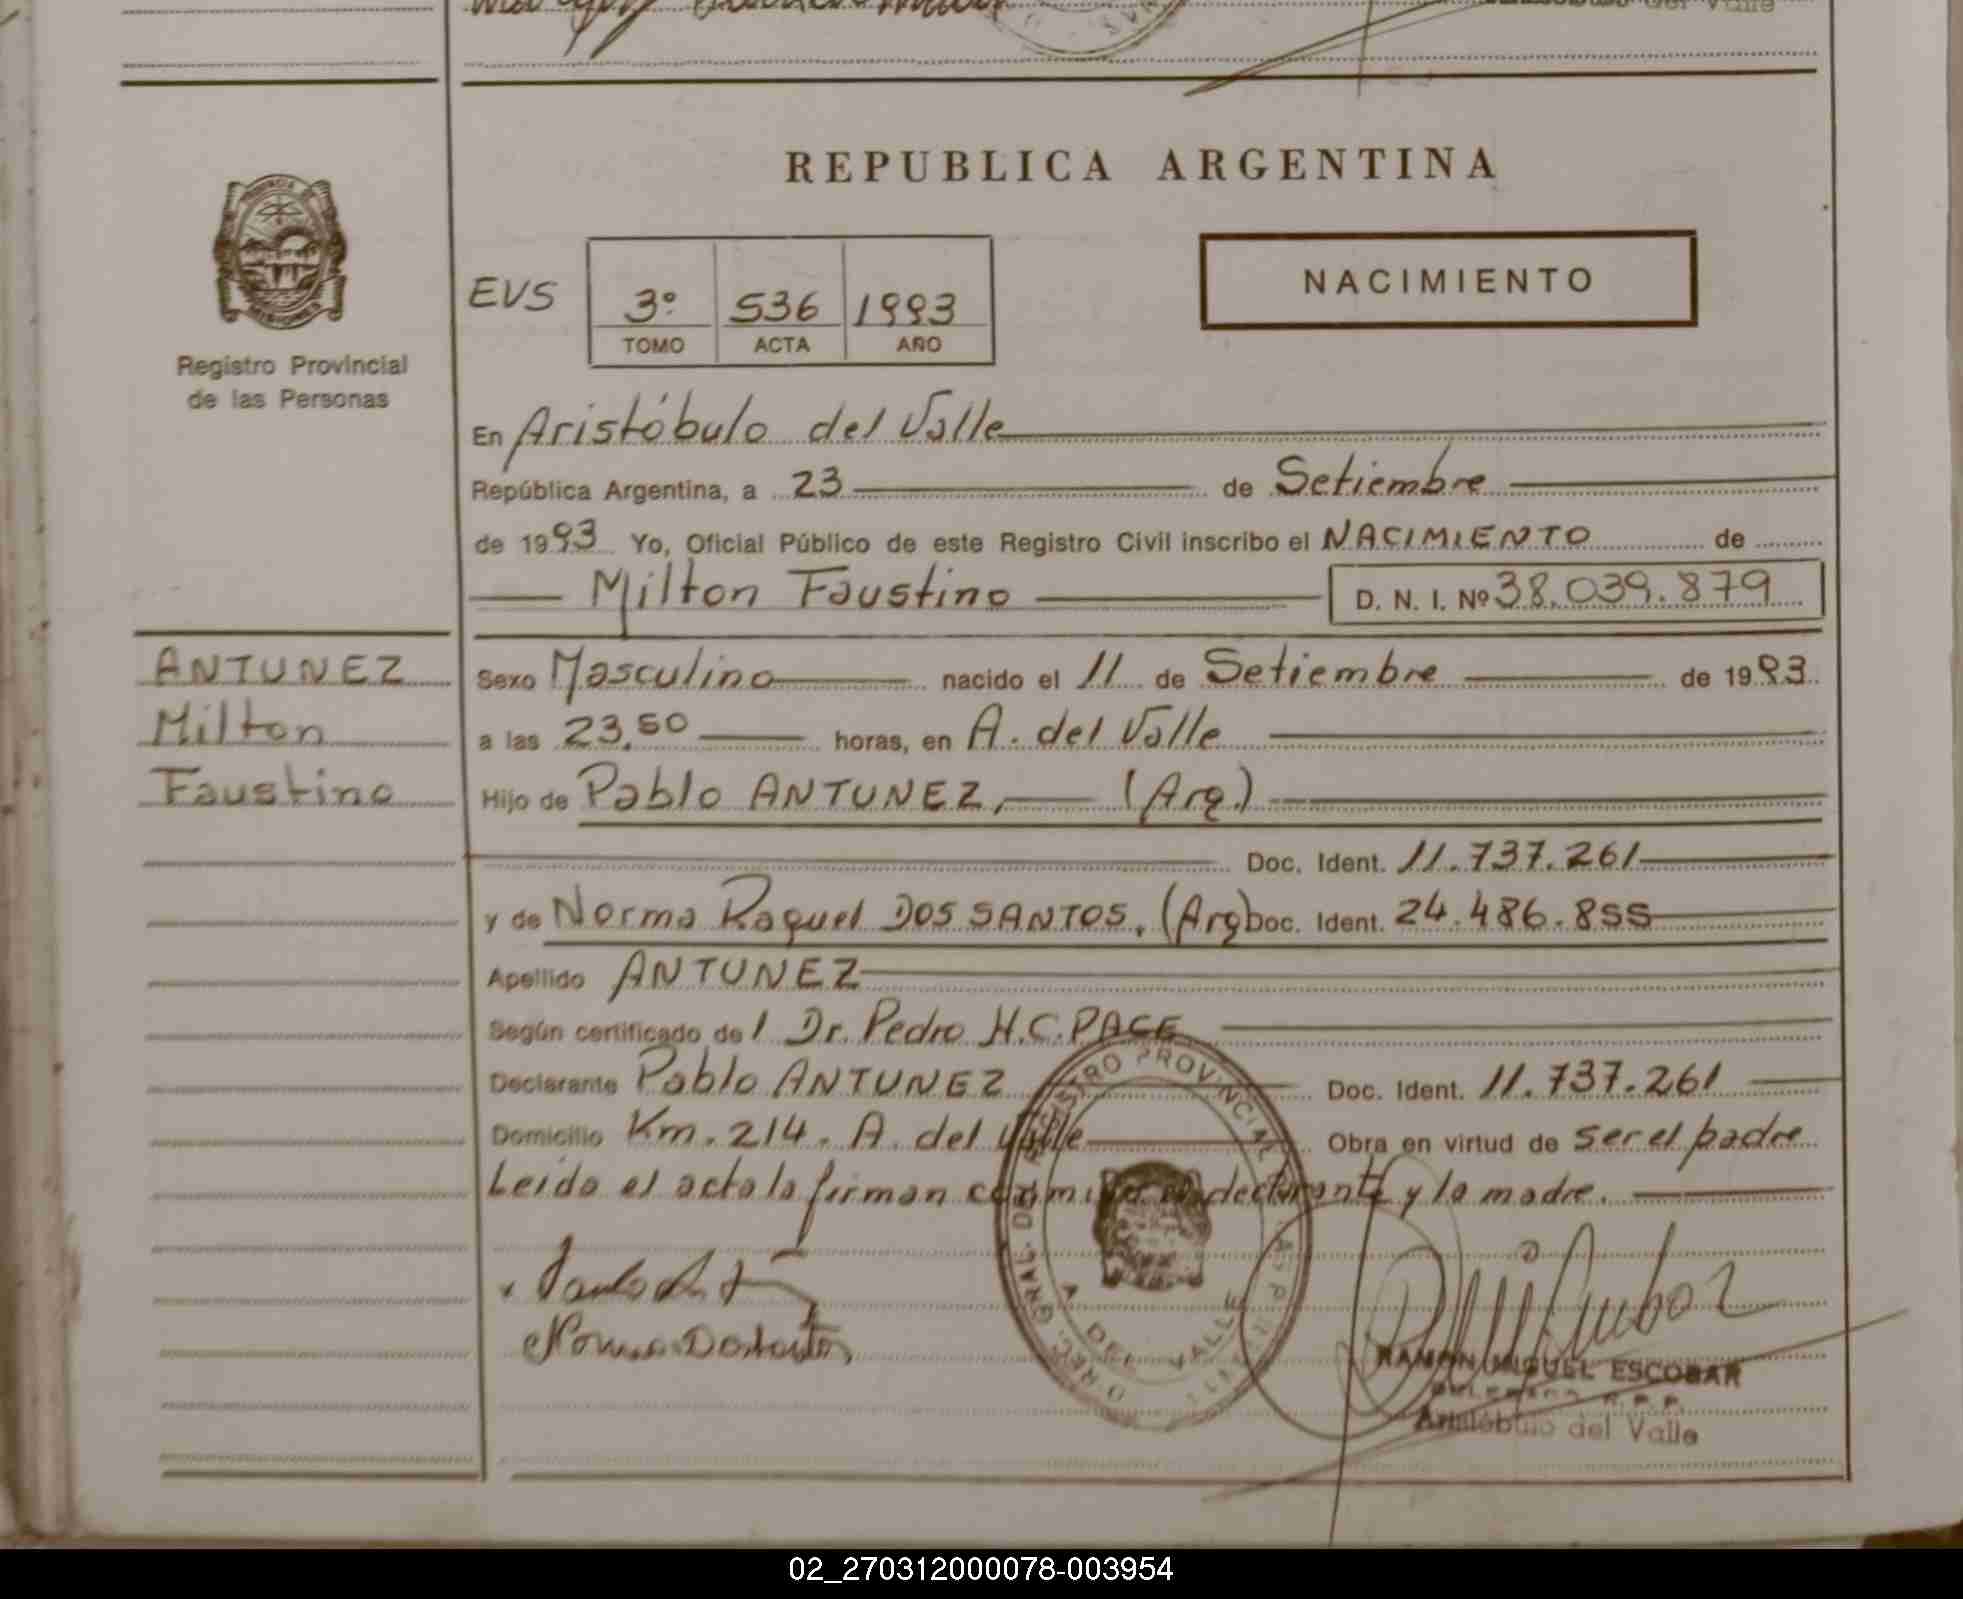 REPUBLICA ARGENTINA
NACIMIENTO
EVS
3º 536 1993
TOMO ACTA AÑO
Registro Provincial
de las Personas
En Aristóbulo del Valle
República Argentina, a 23 de Setiembre
de 1993 Yo, Oficial Público de este Registro Civil inscribo el NACIMIENTO de
Milton Faustino D. N. I. Nº 38.039.879
ANTUNEZ
Milton
Faustino
Sexo Masculino nacido el 11 de Setiembre de 1993
a las 23,50 horas, en A. del Valle
Hijo de Pablo ANTUNEZ, (Arg.)
Doc. Ident. 11.737.261
y de Norma Raquel DOS SANTOS, (Arg) Doc. Ident. 24.486.855
Apellido ANTUNEZ
Según certificado de l Dr. Pedro H.C. PACE
Declarante Pablo ANTUNEZ Doc. Ident. 11.737.261
Domicilio Km. 214. A. del Valle Obra en virtud de ser el padre
Leída el acta la firman conmigo el declarante y la madre.
REGISTRO PROVINCIAL DE LAS PERSONAS
DIREC. GRAL. DEL
A. DEL VALLE
RAMON MIGUEL ESCOBAR
Aristóbulo del Valle
02_270312000078-003954